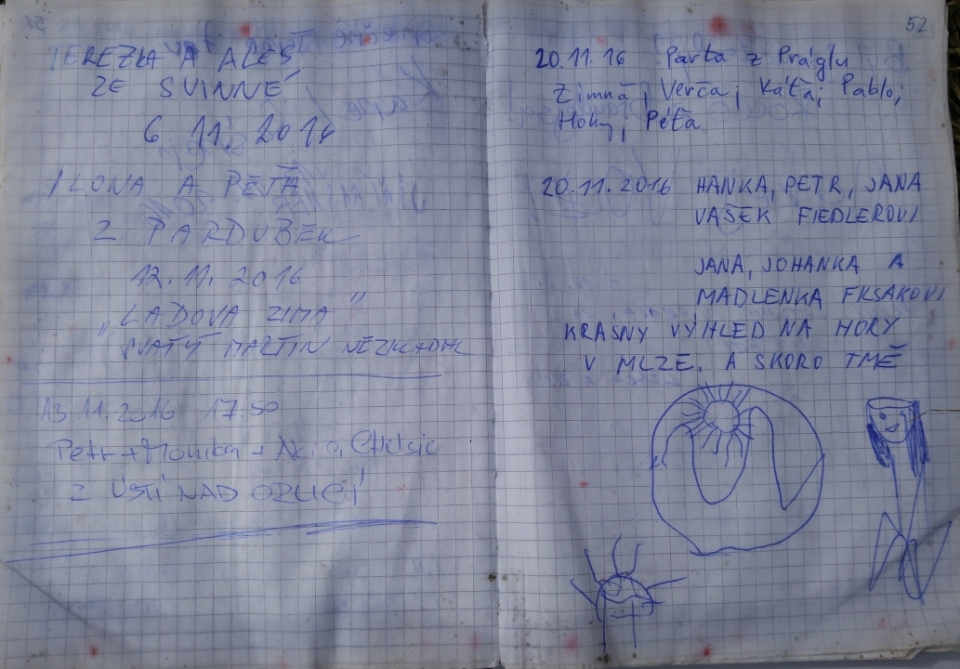 TEREZKA A ALEŠ
ZE SVINNÉ
6. 11. 2016
ILONA A PEŤA
Z PARDUBEK
12. 11. 2016
„LADOVA ZIMA"
SVATÝ MARTIN NEZKLAMAL
13 11. 2016 17:50
Petr + Monika +
Z ÚSTÍ NAD ORLICÍ
52
20.11.16 Parta z Práglu
Zimna, Verča, Káťa, Pablo,
Péťa
20.11.2016 HANKA, PETR, JANA
VAŠEK FIEDLEROVI
JANA, JOHANKA A
MADLENKA FIKSAKOVI
KRÁSNÝ VÝHLED NA HORY
V MLZE. A SKORO TMĚ